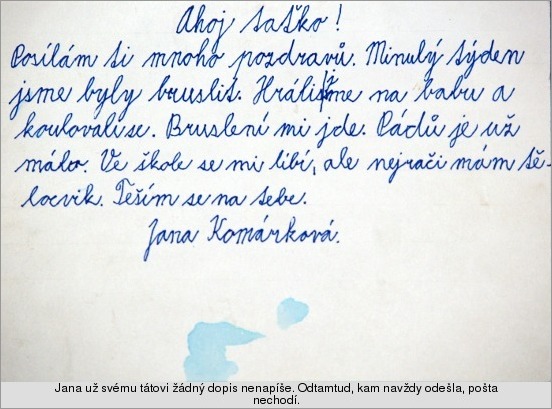 Ahoj taťko!
Posílám ti mnoho pozdravů. Minulý týden
jsme byly bruslit. Hráli jsme na babu a
koulovali se. Bruslení mi jde. Pádů je už
málo. Ve škole se mi líbí, ale nejrači mám tě-
locvik. Těším se na tebe.
Jana Komárková.
Jana už svému tátovi žádný dopis nenapíše. Odtamtud, kam navždy odešla, pošta
nechodí.